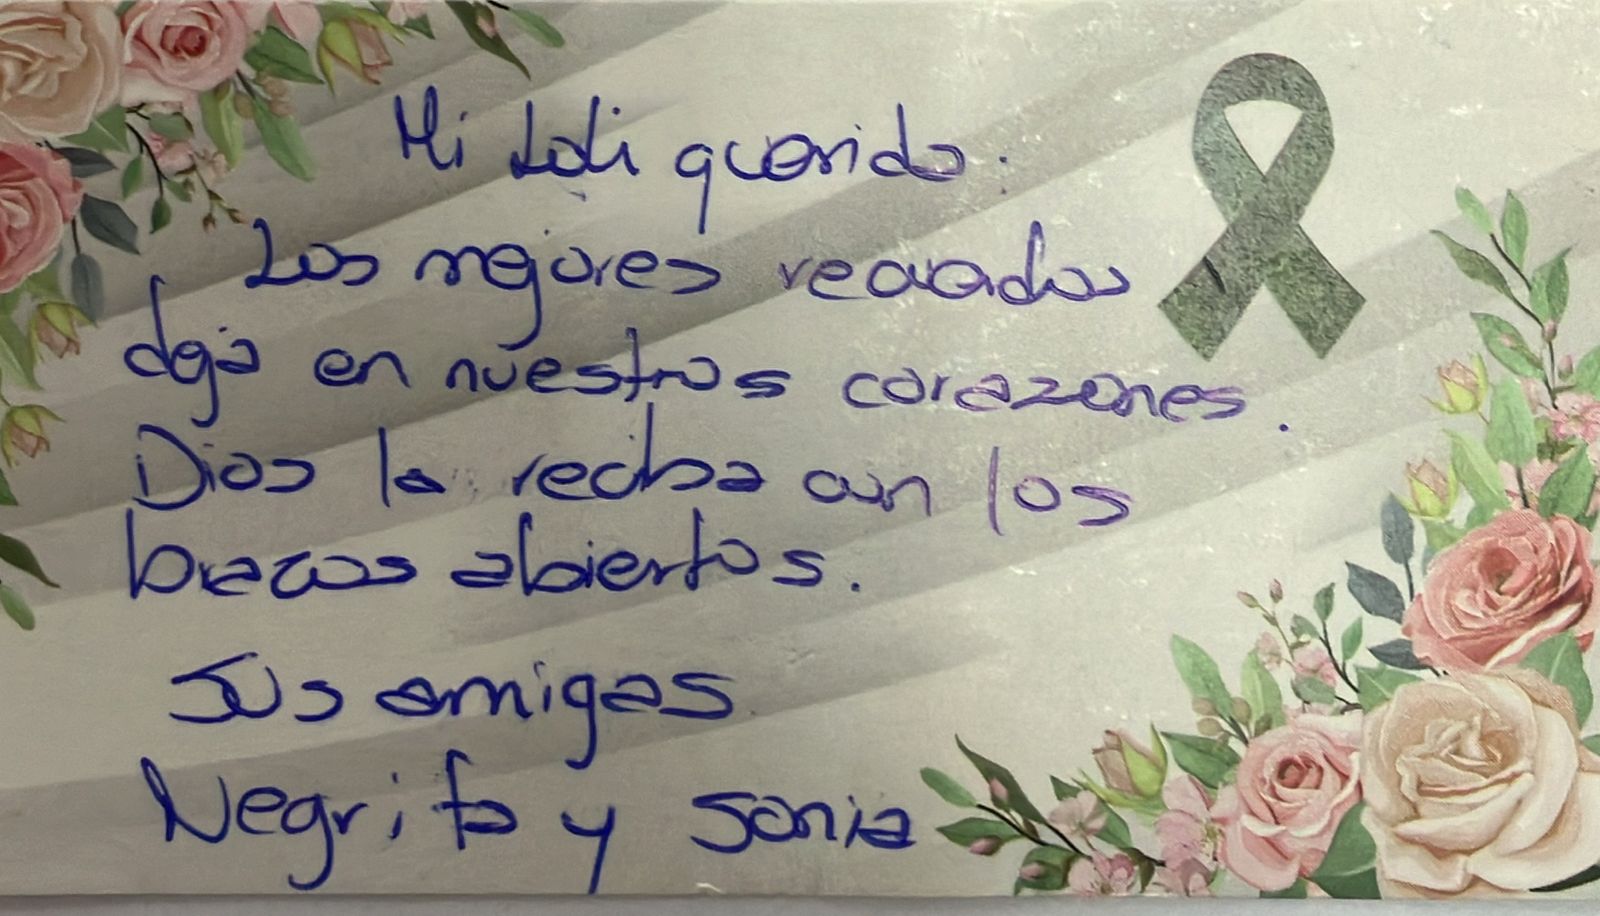 Mi Loli querida.
Los mejores recuerdos
deja en nuestros corazones.
Dios la reciba con los
brazos abiertos.
Sus amigas
Negrita y Sonia